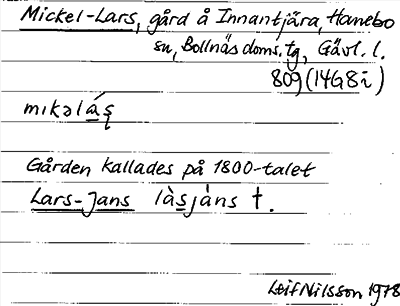 Mickel-Lars, gård å Innantjära, Hanebo
sn, Bollnäs doms. tg, Gävl. l.
809 (14G8i)
mıkəlás̱
Gården kallades på 1800-talet
Lars-Jans làsjàns †.
Leif Nilsson 1978